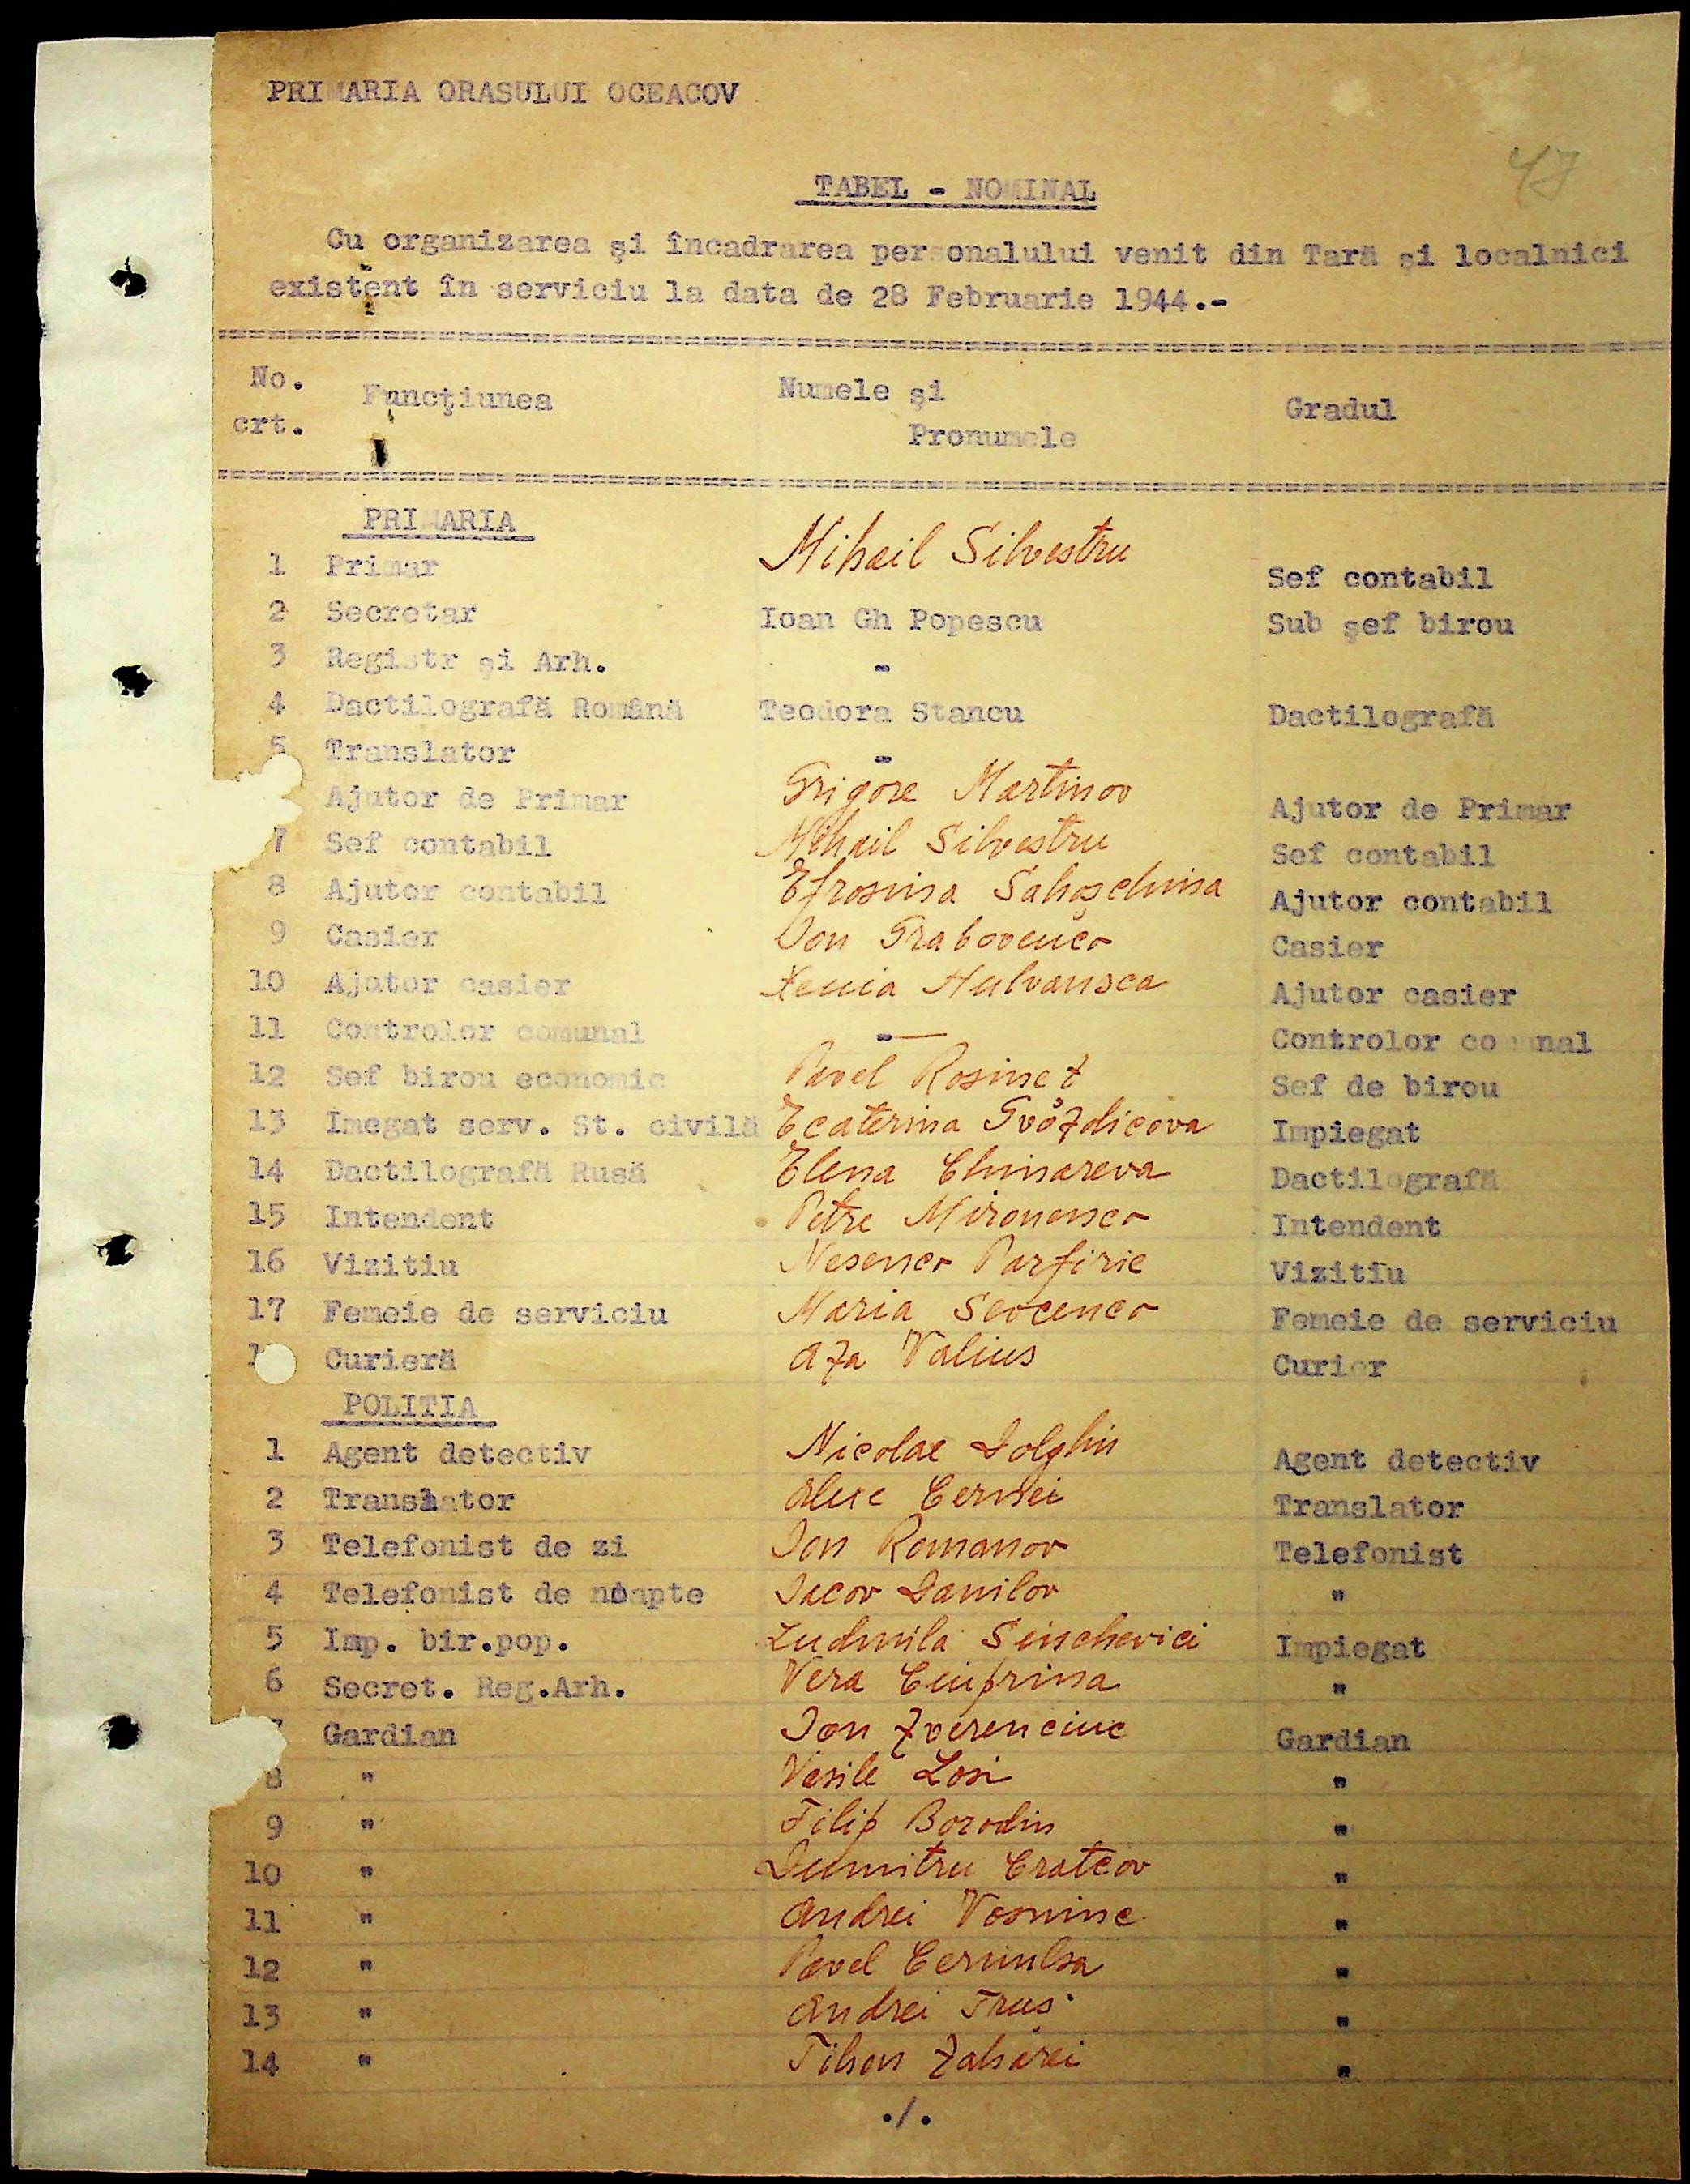 PRIMARIA ORASULUI OCEACOV
47
TABEL - NOMINAL
Cu organizarea şi încadrarea personalului venit din Tară şi localnici
existent în serviciu la data de 28 Februarie 1944.-
No. crt. Funcţiunea Numele şi Pronumele Gradul
PRIMARIA
1 Primar Mihail Silvestru Sef contabil
2 Secretar Ioan Gh Popescu Sub şef birou
3 Registr şi Arh. -
4 Dactilografă Română Teodora Stancu Dactilografă
5 Translator -
Ajutor de Primar Grigore Martinov Ajutor de Primar
7 Sef contabil Mihail Silvestru Sef contabil
8 Ajutor contabil Efrosinia Ajutor contabil
9 Casier Ion Grabovenco Casier
10 Ajutor casier Xenia Hulvansca Ajutor casier
11 Controlor comunal - Controlor comunal
12 Sef birou economic Pavel Sef de birou
13 Imegat serv. St. civilă Ecaterina Gvozdicova Impiegat
14 Dactilografă Rusă Elena Chinareva Dactilografă
15 Intendent Petre Mironenco Intendent
16 Vizitiu Nesenco Parfirie Vizitiu
17 Femeie de serviciu Maria Sevcenco Femeie de serviciu
1 Curieră Aza Valius Curier
POLITIA
1 Agent detectiv Nicolae Dolghin Agent detectiv
2 Translator Alexe Cernei Translator
3 Telefonist de zi Ion Romanov Telefonist
4 Telefonist de noapte Iacov Danilov "
5 Imp. bir.pop. Ludmila Sinchevici Impiegat
6 Secret. Reg.Arh. Vera Ciuprina "
7 Gardian Ion Zverenciuc Gardian
8 " Vasile Losi "
9 " Filip Borodin "
10 " Dumitru Cratcov "
11 " Andrei "
12 " Pavel "
13 " Andrei Trus "
14 " Tihon Zaharei "
./.